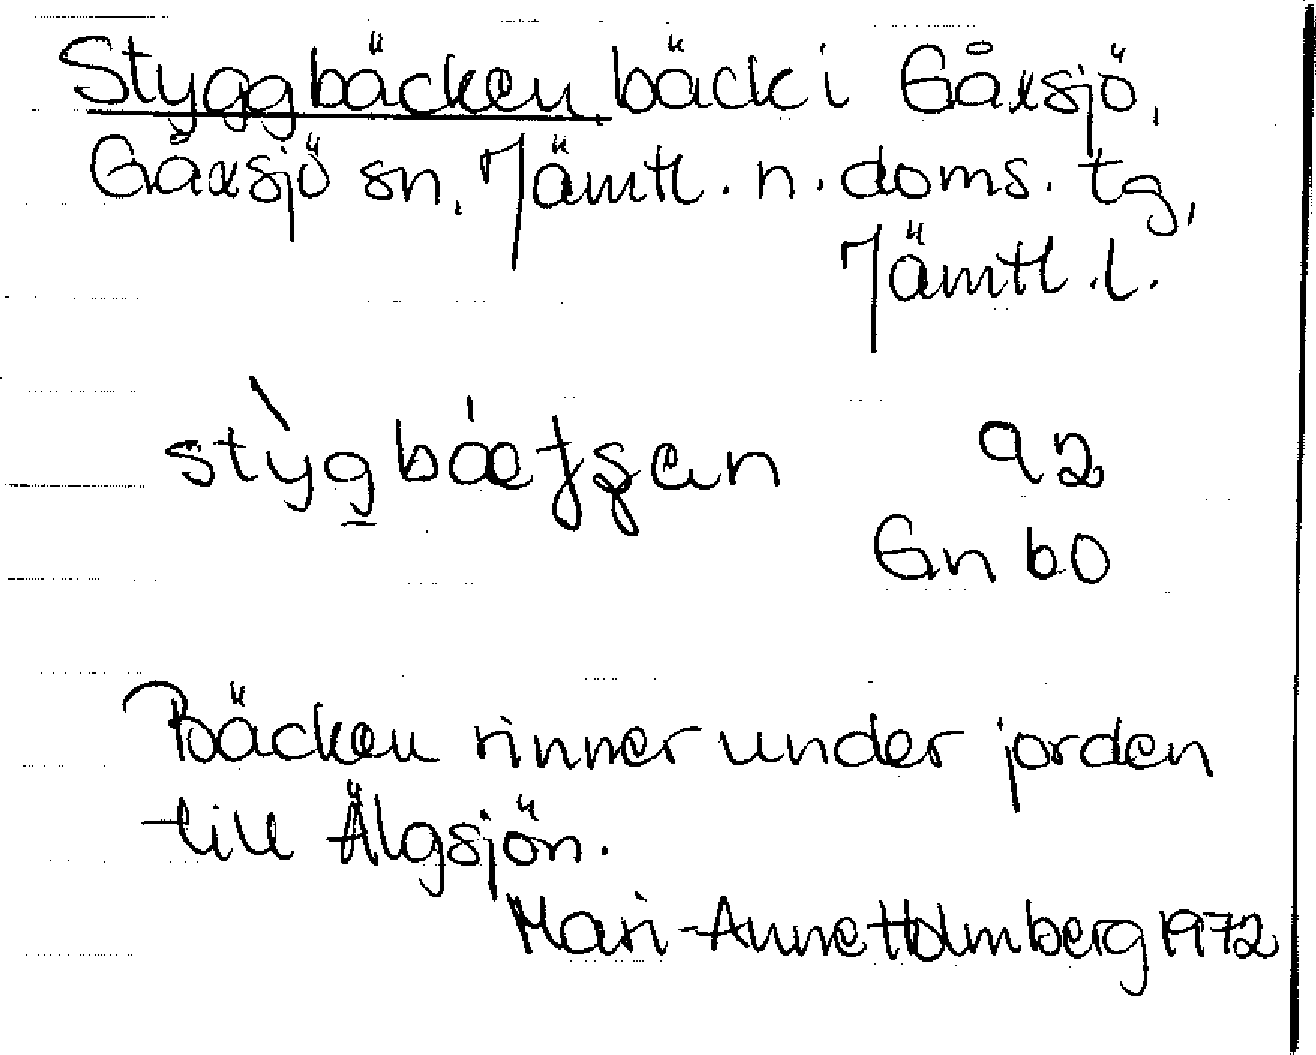 Styggbäcken, bäck i Gåxsjö,
Gåxsjö sn, Jämtl. n. doms. tg,
Jämtl. l.
92
Gn bo
Bäcken rinner under jorden
till Älgsjön.
Mari-Anne Holmberg 1972